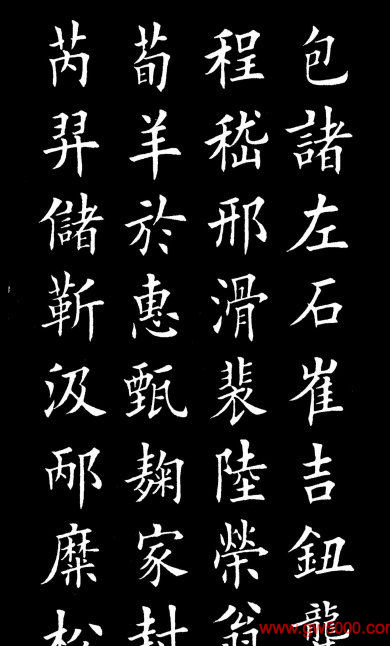 包諸左石崔吉鈕龔
程嵇邢滑裴陸榮翁
荀羊於惠甄麴家封
芮羿儲靳汲邴糜松
www.gw5000.com